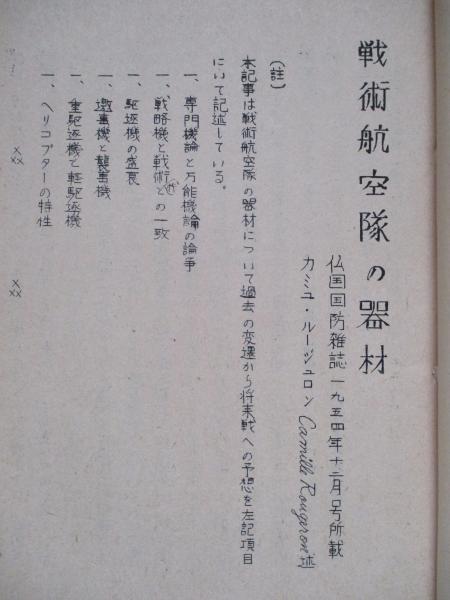 戦術航空隊の器材
仏国国防雑誌一九五四年十二月号所載
カミユ・ルージュロン Camille Rougeron 述
(註)
本記事は戦術航空隊の器材について過去の変遷から将来戦への予想を左記項目
にいて記述している。
一、専門機論と万能機論の論争
一、戦略機と戦術機との一致
一、駆逐機の盛衰
一、邀撃機と襲撃機
一、重駆逐機と軽駆逐機
一、ヘリコプターの特性